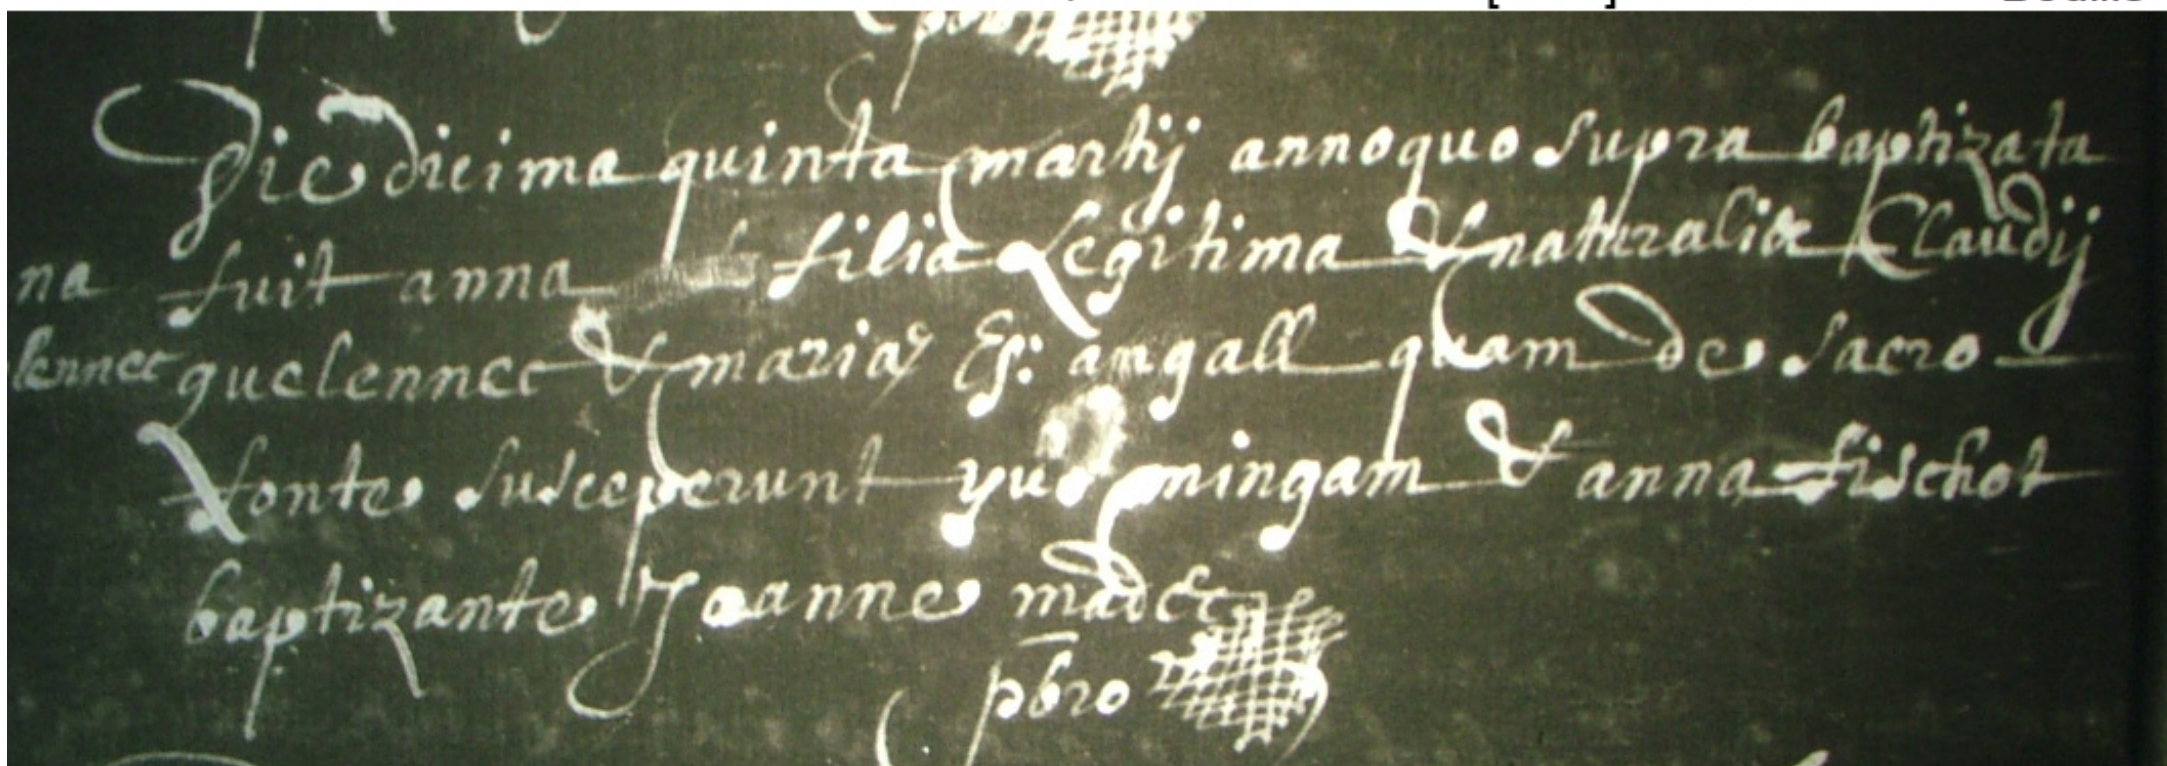 Die dicima quinta martij anno quo supra baptizata
na fuit anna filia Legitima & naturalis Claudij
lennec quelennec & mariæ Es: an gall quam de sacro
fonte susceperunt yuo mingam & anna fischot
baptizante Joanne madec
pbro